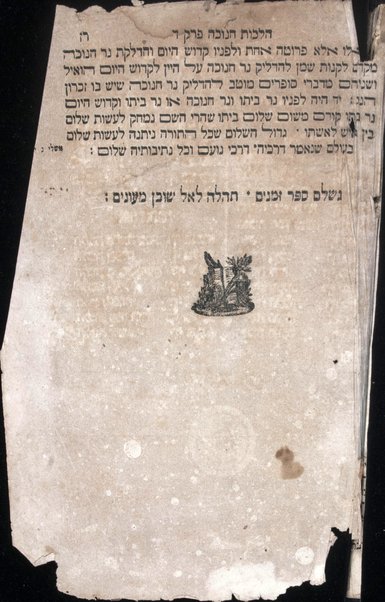 הלכות חנוכה פרק ד
לו אלא פרוטה אחת ולפניו קדוש היום והדלקת נר חנוכה
מקדים לקנות שמן להדליק נר חנוכה על היין לקדוש היום הואיל
ושניהם מדברי סופרים מוטב להדליק נר חנוכה שיש בו זכרון
הנס: יד היה לפניו נר ביתו ונר חנוכה או נר ביתו וקדוש היום
נר ביתו קודם משום שלום ביתו שהרי השם נמחק לעשות שלום
בין איש לאשתו: גדול השלום שכל התורה ניתנה לעשות שלום
בעולם שנאמר דרכיה דרכי נועם וכל נתיבותיה שלום: משלי ג
נשלם ספר זמנים: תהלה לאל שוכן מעונים: